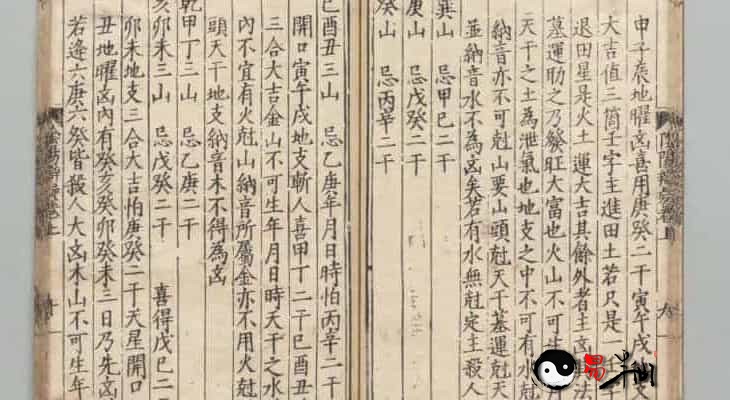 申子辰地曜凶喜用庚癸二干寅午戌
大吉值三箇壬字主進田土若只是一壬字
退田星是火土運大吉其餘外者主凶法
墓運助之乃發旺大富也火山不可生月
天干之土為泄氣也地支之中不可有水尅
納音亦不可尅山要山頭尅天干墓運尅天
並納音水不為凶矣若有水無尅定主殺人
巽山 忌甲巳二干
庚山 忌戊癸二干
癸山 忌丙辛二干
巳酉丑三山 忌乙庚年月日時怕丙辛二干
開口寅午戌地支斬人喜甲丁二干巳酉丑
三合大吉金山不可生年月日時天干之水
內不宜有火尅山納音所屬金亦不用火尅
頭天干地支納音木不得為凶
乾甲丁三山 忌乙庚二干
亥卯未三山 忌戊癸二干 喜得戊巳二干
卯未地支三合大吉怕庚癸二干天星開口
丑地曜凶內有癸亥癸卯癸未三日乃先凶
若逢六庚六癸皆殺人大凶木山不可生年
易半仙